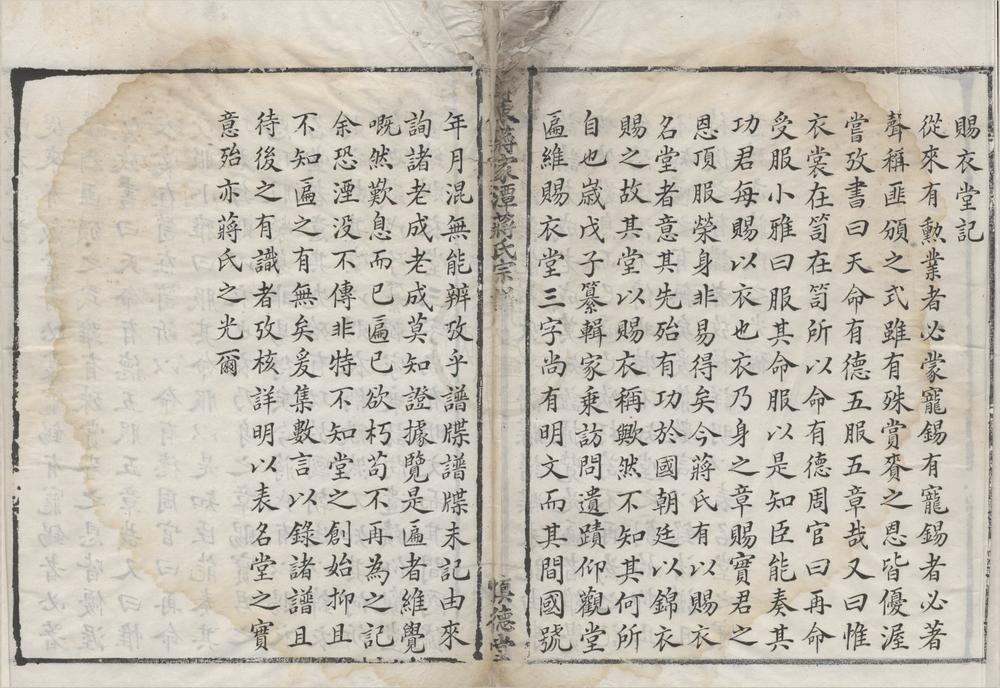 賜衣堂記
從來有勲業者必蒙寵錫有寵錫者必著
聲稱匪頒之式雖有殊賞賚之恩皆優渥
嘗攷書曰天命有德五服五章哉又曰惟
衣裳在笥在笥所以命有德周官曰再命
受服小雅曰服其命服以是知臣能奏其
功君每賜以衣也衣乃身之章賜實君之
恩頂服榮身非易得矣今蔣氏有以賜衣
名堂者意其先殆有功於國朝廷以錦衣
賜之故其堂以賜衣稱歟然不知其何所
自也嵗戊子纂輯家乗訪問遺蹟仰觀堂
匾維賜衣堂三字尚有明文而其間國號
東蔣家潭蔣氏宗譜
慎德堂
年月混無能辨攷乎譜牒譜牒未記由來
詢諸老成老成莫知證據覽是匾者維覺
嘅然歎息而已匾已欲朽茍不再為之記
余恐湮没不傳非特不知堂之創始抑且
不知匾之有無矣爰集數言以錄諸譜且
待後之有識者攷核詳明以表名堂之實
意殆亦蔣氏之光爾